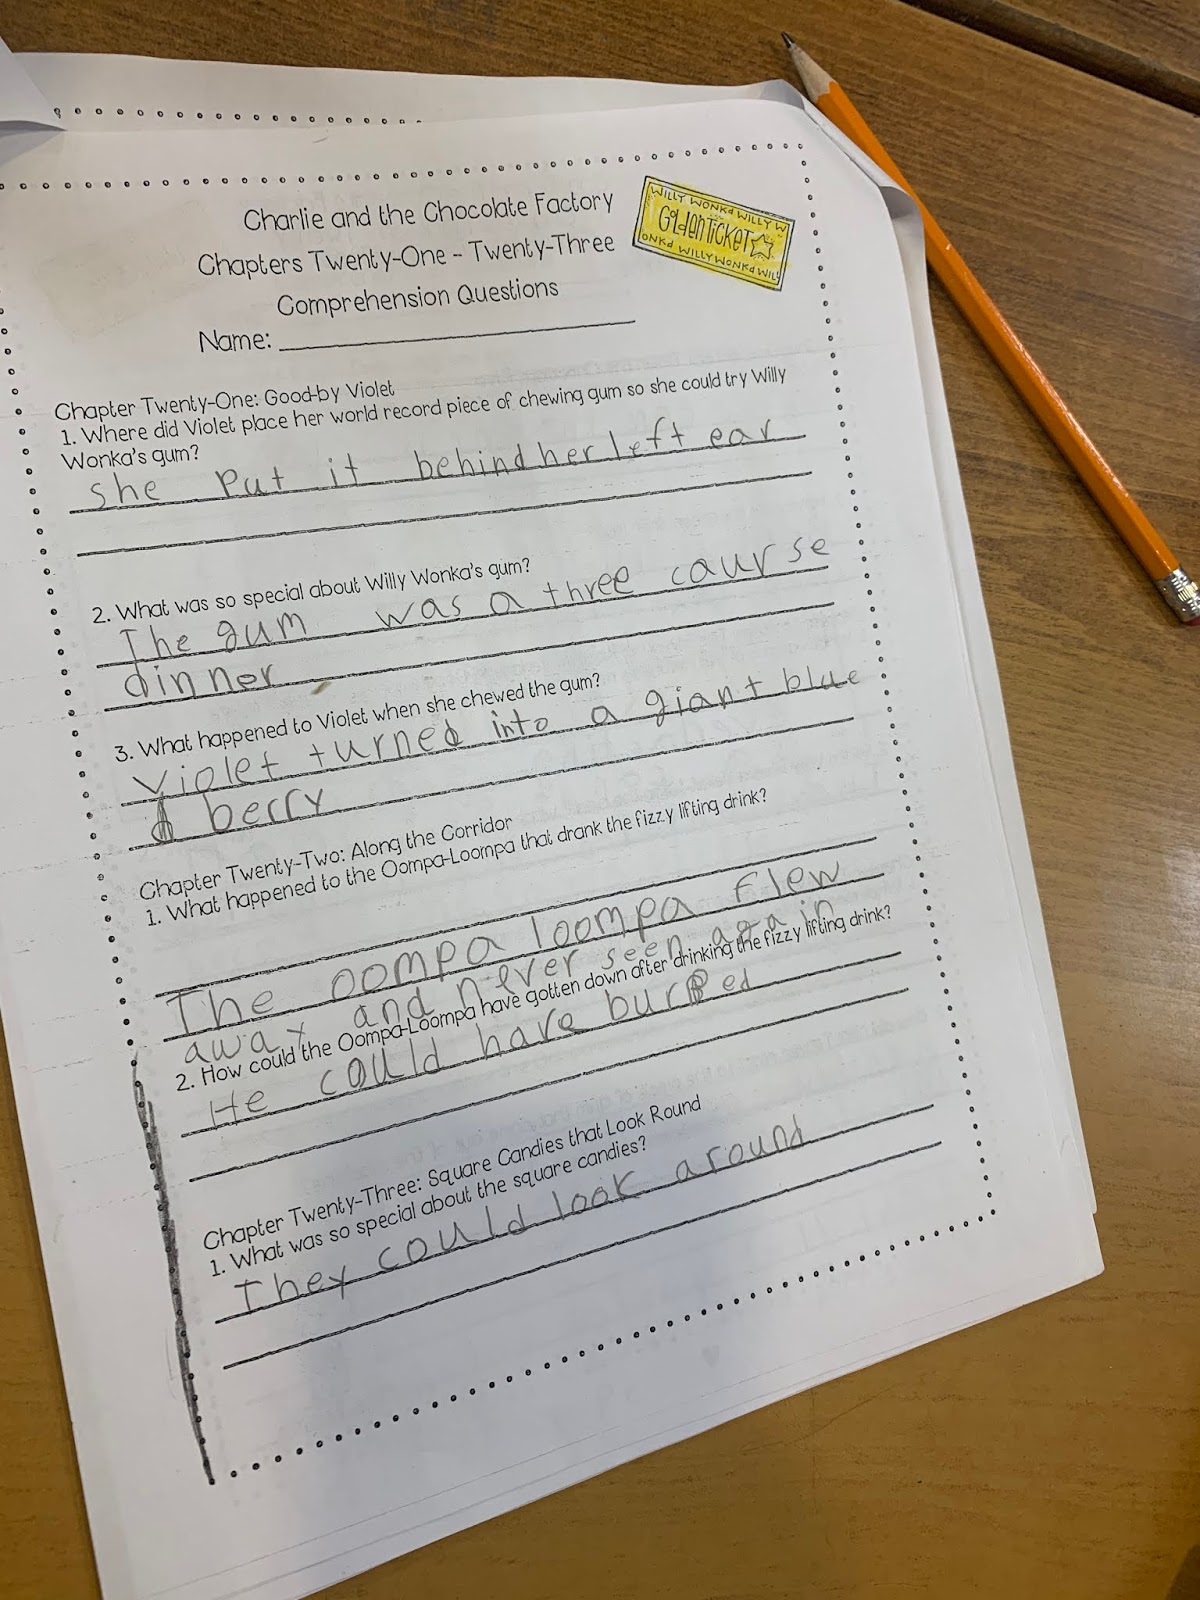 Charlie and the Chocolate Factory
Chapters Twenty-One - Twenty-Three
Comprehension Questions
Name:
WILLY WONKA WILLY W
GOLDEN TICKET
ONKA WILLY WONKA WIL
Chapter Twenty-One: Good-by Violet
1. Where did Violet place her world record piece of chewing gum so she could try Willy
Wonka's gum?
She put it behind her left ear
2. What was so special about Willy Wonka's gum?
The gum was a three caurse
dinner
3. What happened to Violet when she chewed the gum?
Violet turned into a giant blue
berry
Chapter Twenty-Two: Along the Corridor
1. What happened to the Oompa-Loompa that drank the fizzy lifting drink?
The oompa loompa flew
away and never seen again
2. How could the Oompa-Loompa have gotten down after drinking the fizzy lifting drink?
He could have burped
Chapter Twenty-Three: Square Candies that Look Round
1. What was so special about the square candies?
They could look around